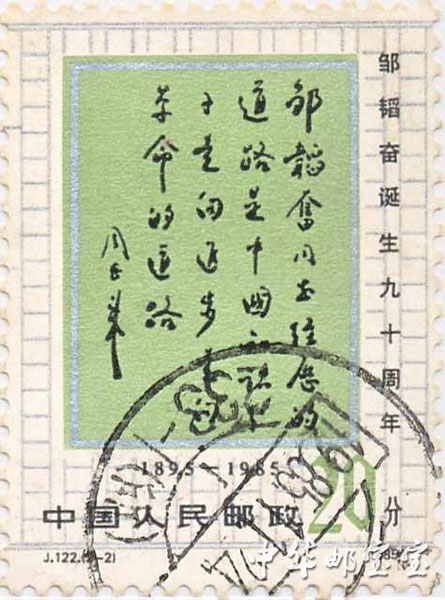 邹韬奋诞生九十周年
邹韬奋同志经历的
道路是中国知识
分子走向进步走向
革命的道路
周恩来
1895—1985
20分
中国人民邮政
J.122.(2-2)
中华邮宝宝